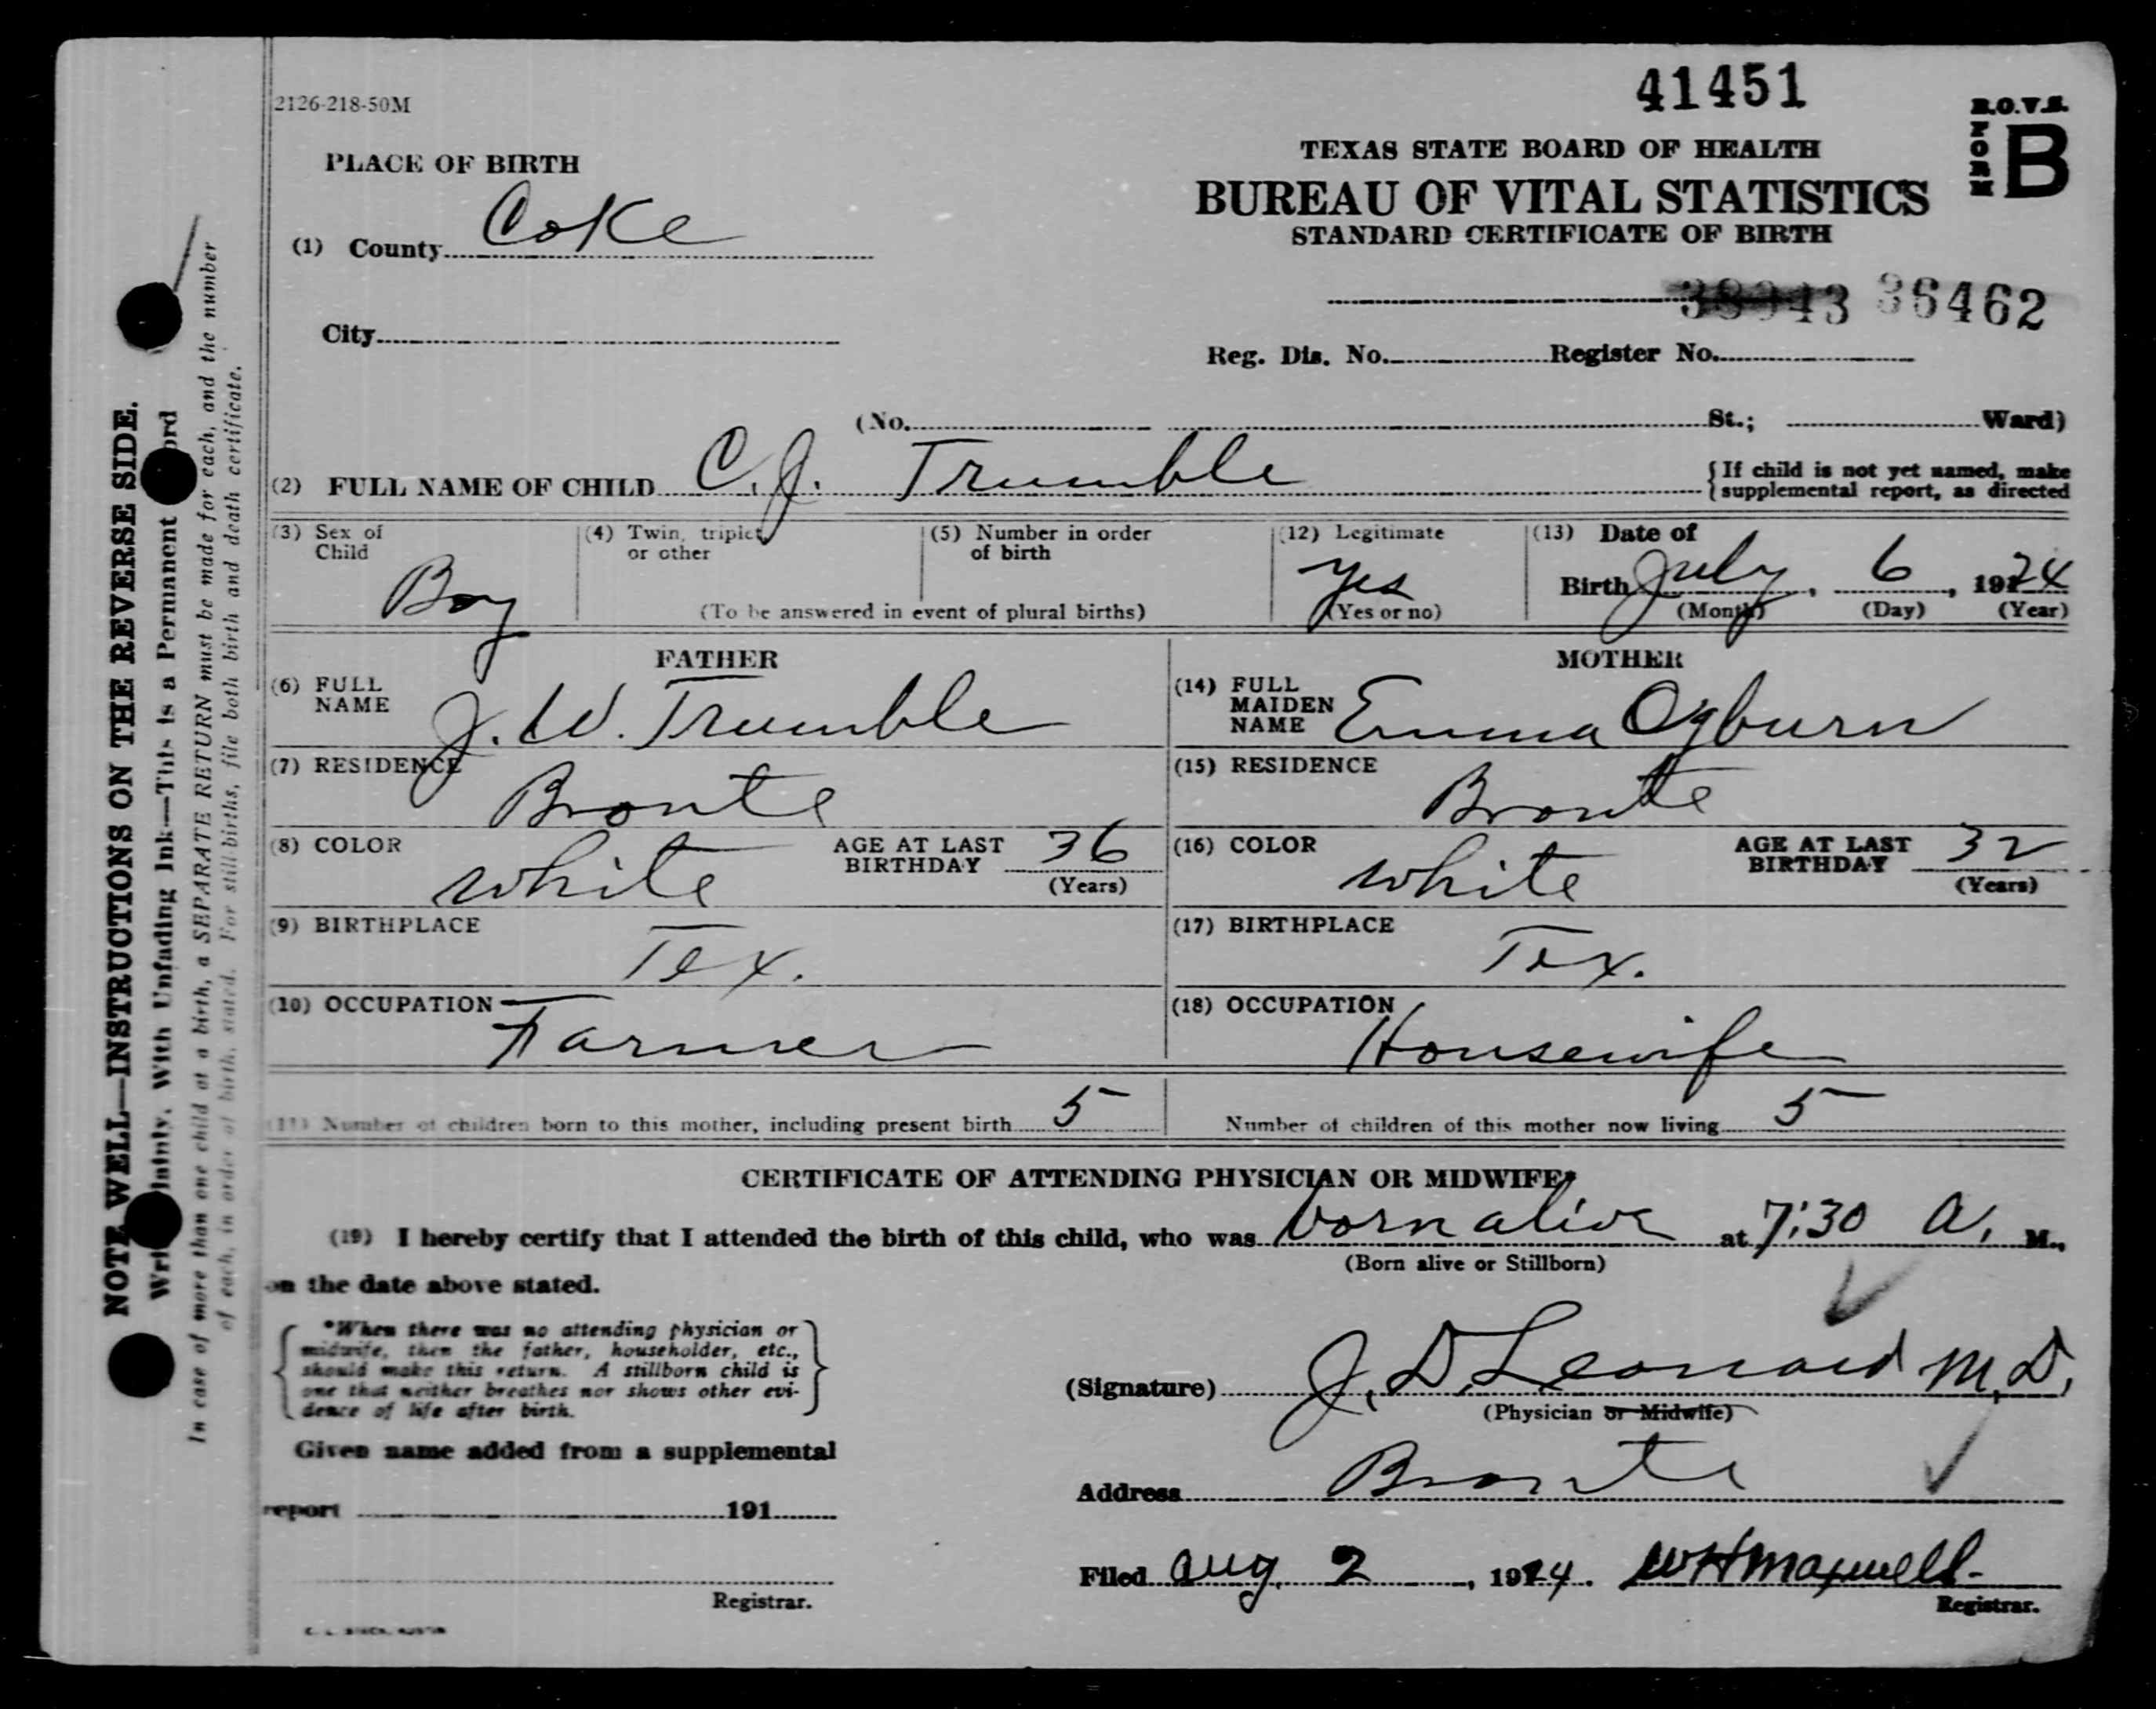 41451
2126-218-50M
R.O.V.S.
FORM B
TEXAS STATE BOARD OF HEALTH
BUREAU OF VITAL STATISTICS
STANDARD CERTIFICATE OF BIRTH
PLACE OF BIRTH
(1) County Coke
36462
City
Reg. Dis. No. Register No.
(No. St.; Ward)
(2) FULL NAME OF CHILD C.J. Trumble
{If child is not yet named, make
supplemental report, as directed
(3) Sex of Child Boy
(4) Twin, triplet or other
(5) Number in order of birth
(To be answered in event of plural births)
(12) Legitimate yes (Yes or no)
(13) Date of Birth July, 6, 1924
(Month) (Day) (Year)
FATHER
(6) FULL NAME J. W. Trumble
(7) RESIDENCE Bronte
(8) COLOR white AGE AT LAST BIRTHDAY 36 (Years)
(9) BIRTHPLACE Tex.
(10) OCCUPATION Farmer
MOTHER
(14) FULL MAIDEN NAME Emma Ogburn
(15) RESIDENCE Bronte
(16) COLOR white AGE AT LAST BIRTHDAY 32 (Years)
(17) BIRTHPLACE Tex.
(18) OCCUPATION Housewife
(11) Number of children born to this mother, including present birth 5
Number of children of this mother now living 5
CERTIFICATE OF ATTENDING PHYSICIAN OR MIDWIFE*
(19) I hereby certify that I attended the birth of this child, who was born alive at 7:30 A. M.,
(Born alive or Stillborn)
on the date above stated.
*When there was no attending physician or
midwife, then the father, householder, etc.,
should make this return. A stillborn child is
one that neither breathes nor shows other evi-
dence of life after birth.
(Signature) J. D. Leonard M.D.
(Physician or Midwife)
Given name added from a supplemental
report 191
Registrar.
Address Bronte
Filed Aug 2, 1924. W H Maxwell
Registrar.
NOTE WELL—INSTRUCTIONS ON THE REVERSE SIDE.
With Unfading Ink—This is a Permanent
In case of more than one child at a birth, a SEPARATE RETURN must be made for each, and the number
of each, in order of birth, stated. For still-births, file both birth and death certificate.